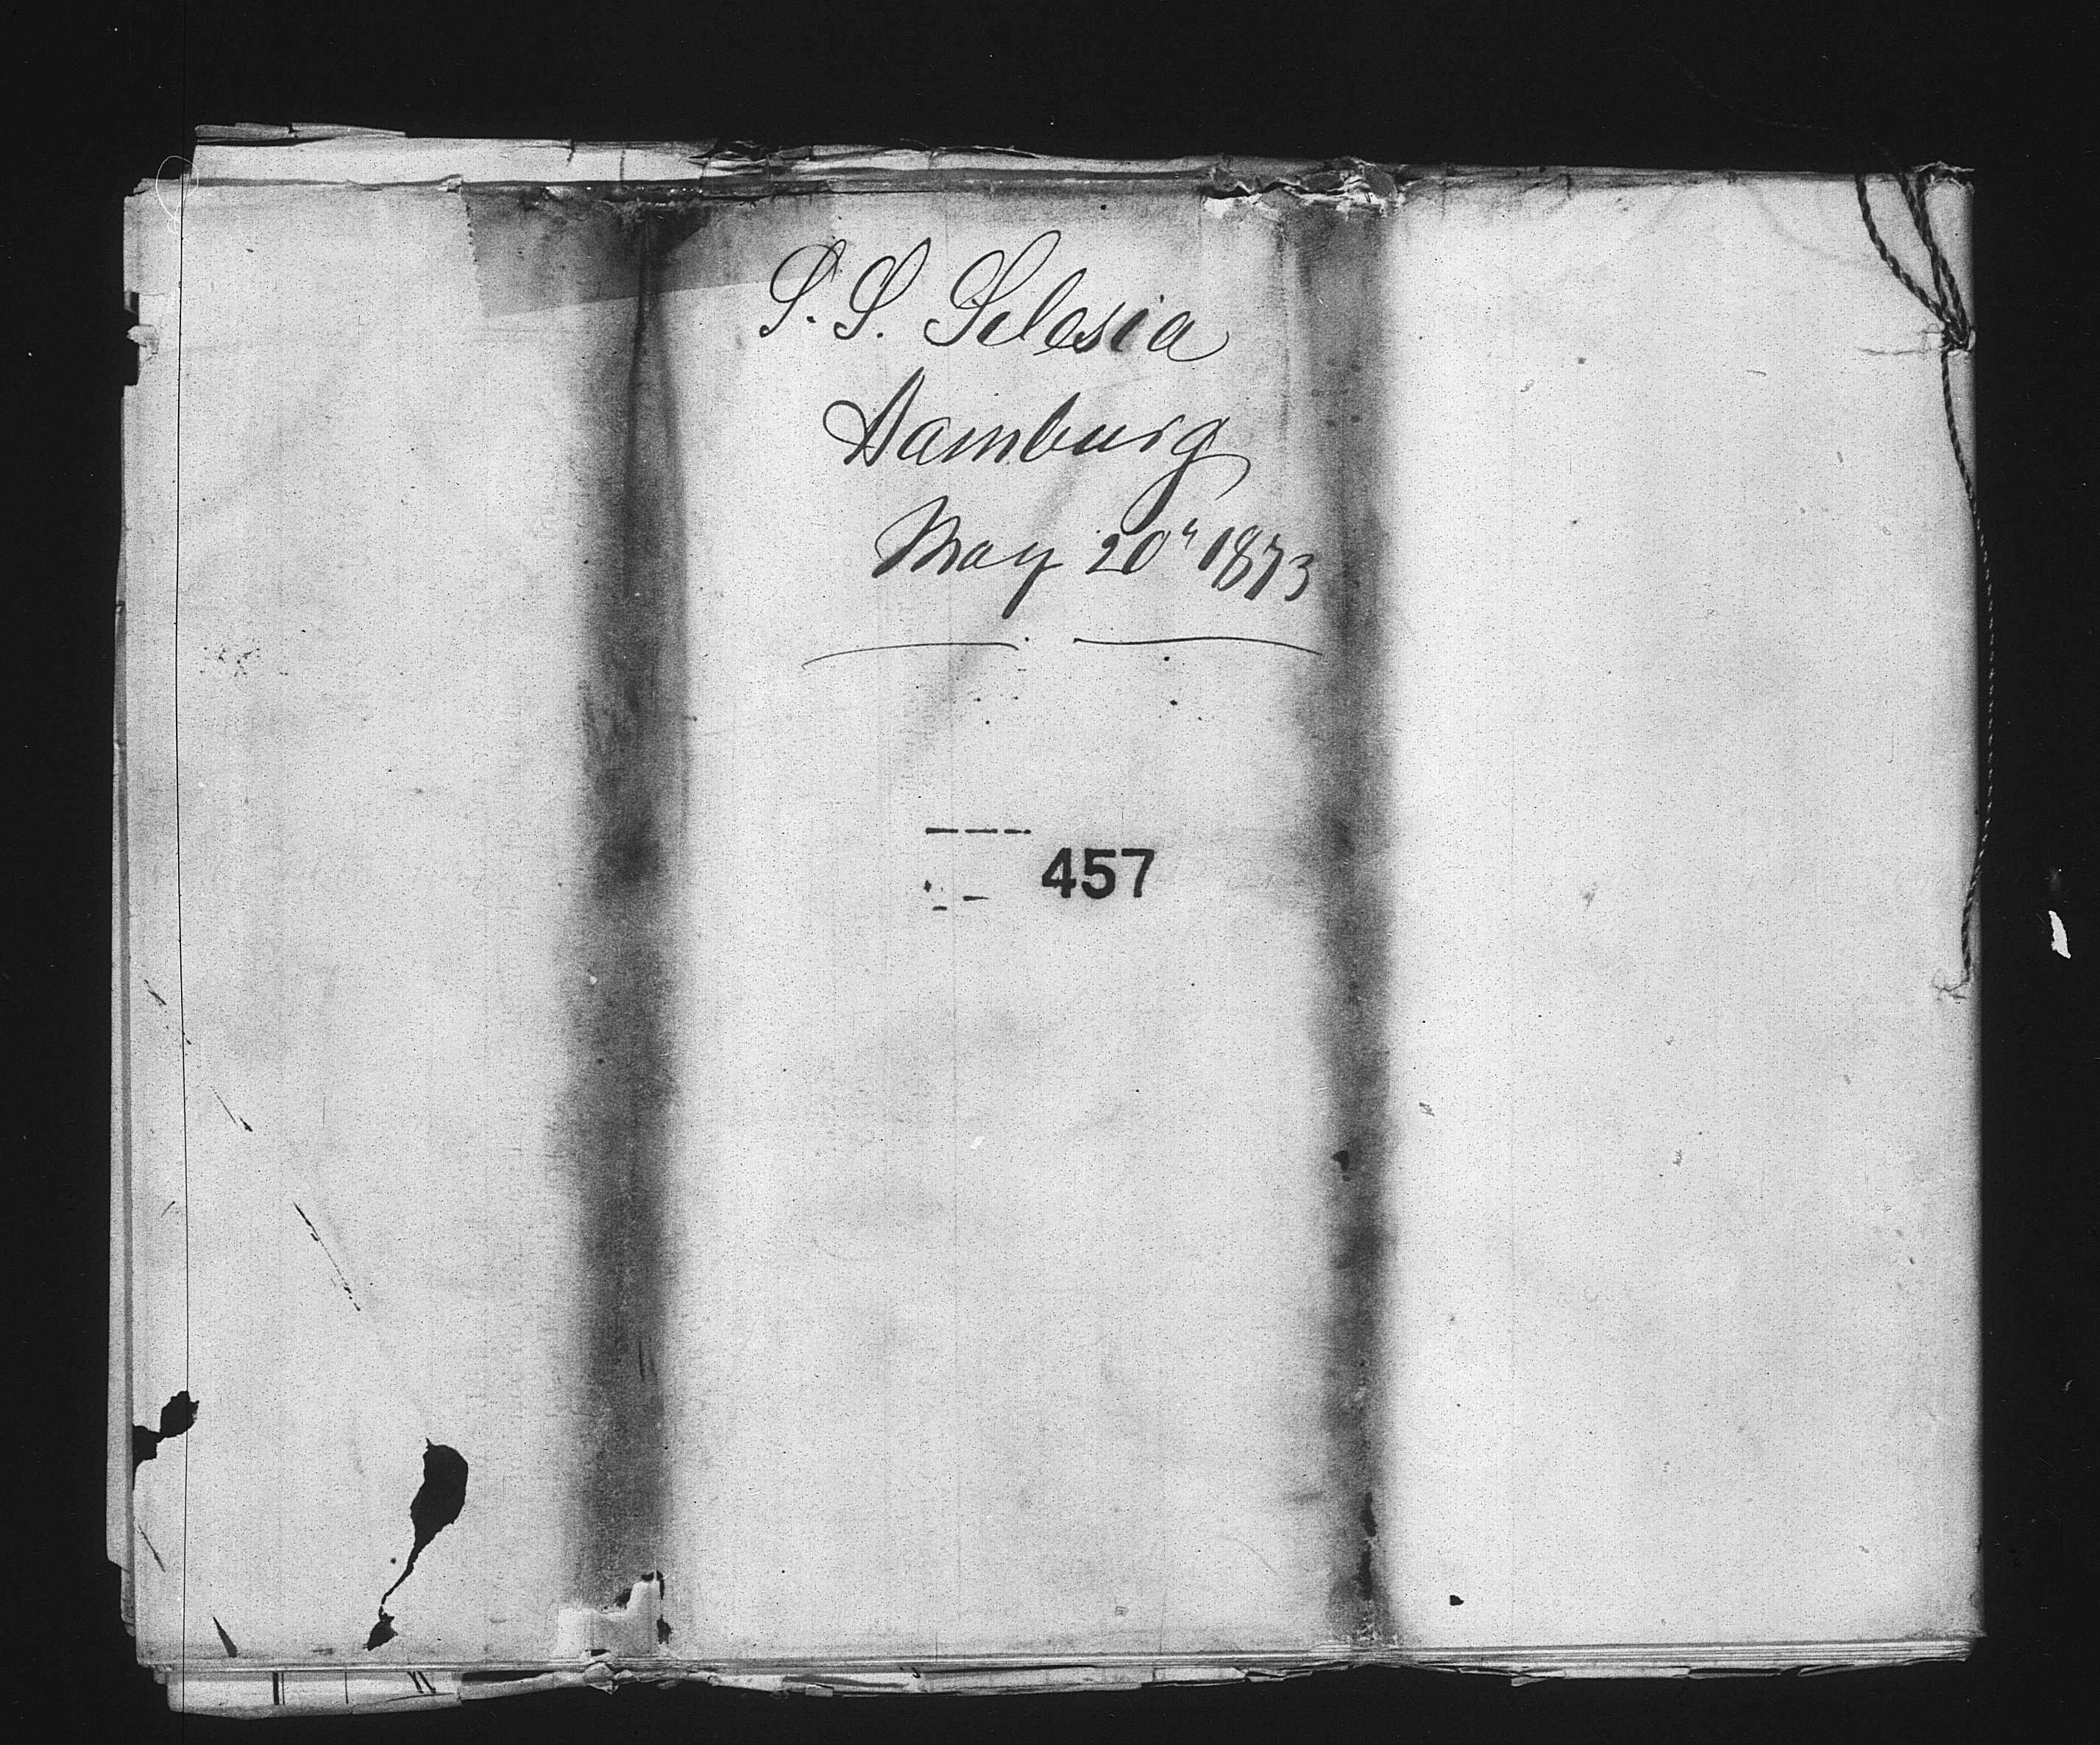 S. S. Silesia
Hamburg
May 20" 1873
457